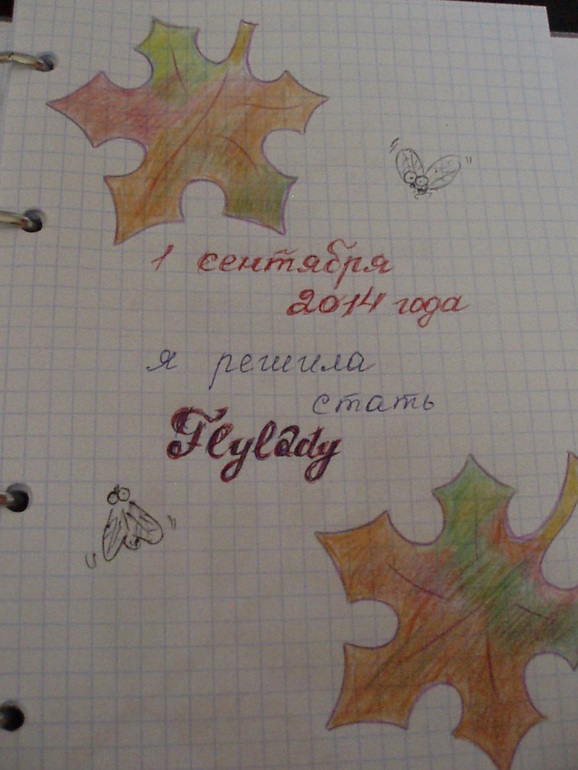 1 сентября
2014 года
я решила
стать
Flylady